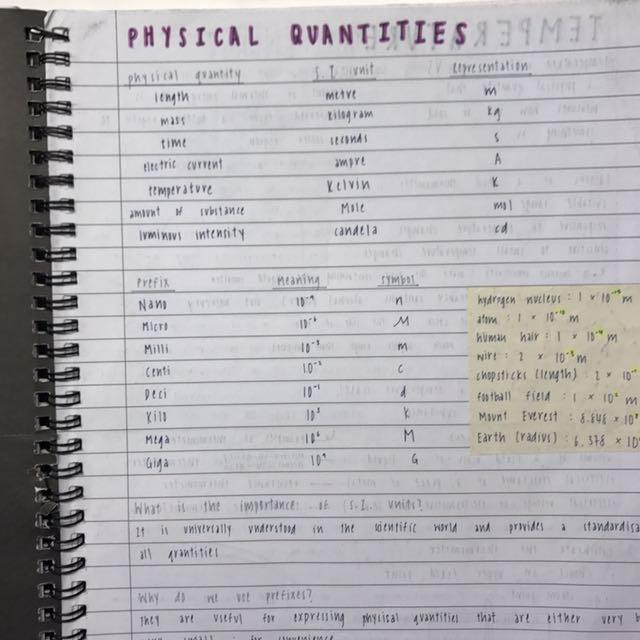 PHYSICAL QUANTITIES
physical quantity S.I. unit representation
length metre m
mass kilogram kg
time seconds s
electric current ampre A
temperature Kelvin K
amount of substance Mole mol
luminous intensity candela cd
Prefix meaning symbol
Nano 10⁻⁹ n
Micro 10⁻⁶ M
Milli 10⁻³ m
Centi 10⁻² c
Deci 10⁻¹ d
Kilo 10³ K
Mega 10⁶ M
Giga 10⁹ G
hydrogen nucleus : 1 × 10⁻¹⁵ m
atom : 1 × 10⁻¹⁰ m
human hair : 1 × 10⁻⁴ m
wire : 2 × 10⁻³ m
chopsticks (length) : 2 × 10
football field : 1 × 10² m
Mount Everest : 8.848 × 10³
Earth (radius) : 6.378 × 10
What is the importance of (S.I. units?
It is universally understood in the scientific world and provides a standardisa
all qrantities
Why do we use prefixes?
They are useful for expressing physical quantities that are either very
for convenience